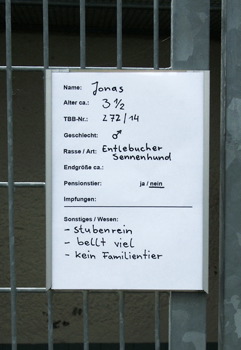 Name: Jonas
Alter ca.: 3 1/2
TBB-Nr.: 272/14
Geschlecht: ♂
Rasse / Art: Entlebucher
Sennenhund
Endgröße ca.:
Pensionstier: ja / nein
Impfungen:
Sonstiges / Wesen:
- stubenrein
- bellt viel
- kein Familientier